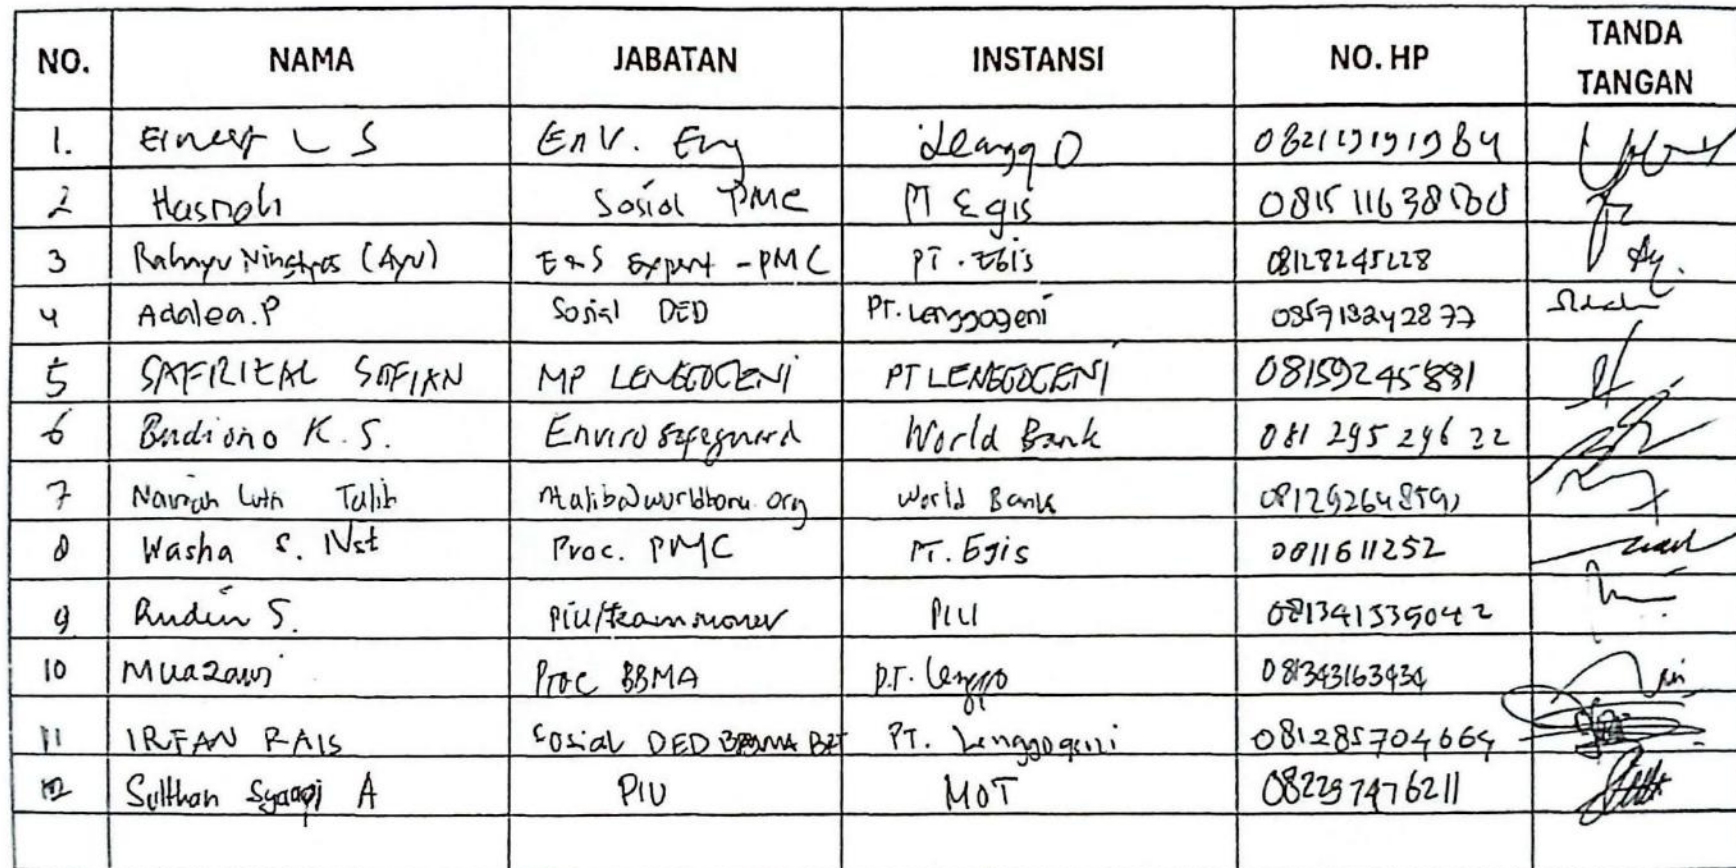 NO. NAMA JABATAN INSTANSI NO. HP TANDA TANGAN
1. Ernest L S Env. Eng 082119191984
2 Hasnah Sosial PMC PT Egis
3 Rahayu Ningtyas (Ayu) E&S Expert - PMC PT. Egis 08128245228
4 Adalea.P Sosial DED PT. Lenggogeni 085713242877
5 SAFRIZAL SOFIAN MP LENGGOGENI PT LENGGOGENI 08159245881
6 Budiono K.S. Enviro safeguard World Bank 081 295 296 22
7 Talib World Bank
8 Washa S. Nst Proc. PMC PT. Egis 0811611252
9 Rudin S. PIU/team monev PIU 081341535042
10 Muazawi Proc BBMA P.T. Lenggo 081343163434
11 IRFAN RAIS Sosial DED PT. Lenggogeni 081285704664
12 Sulthan A PIU MOT 082297476211